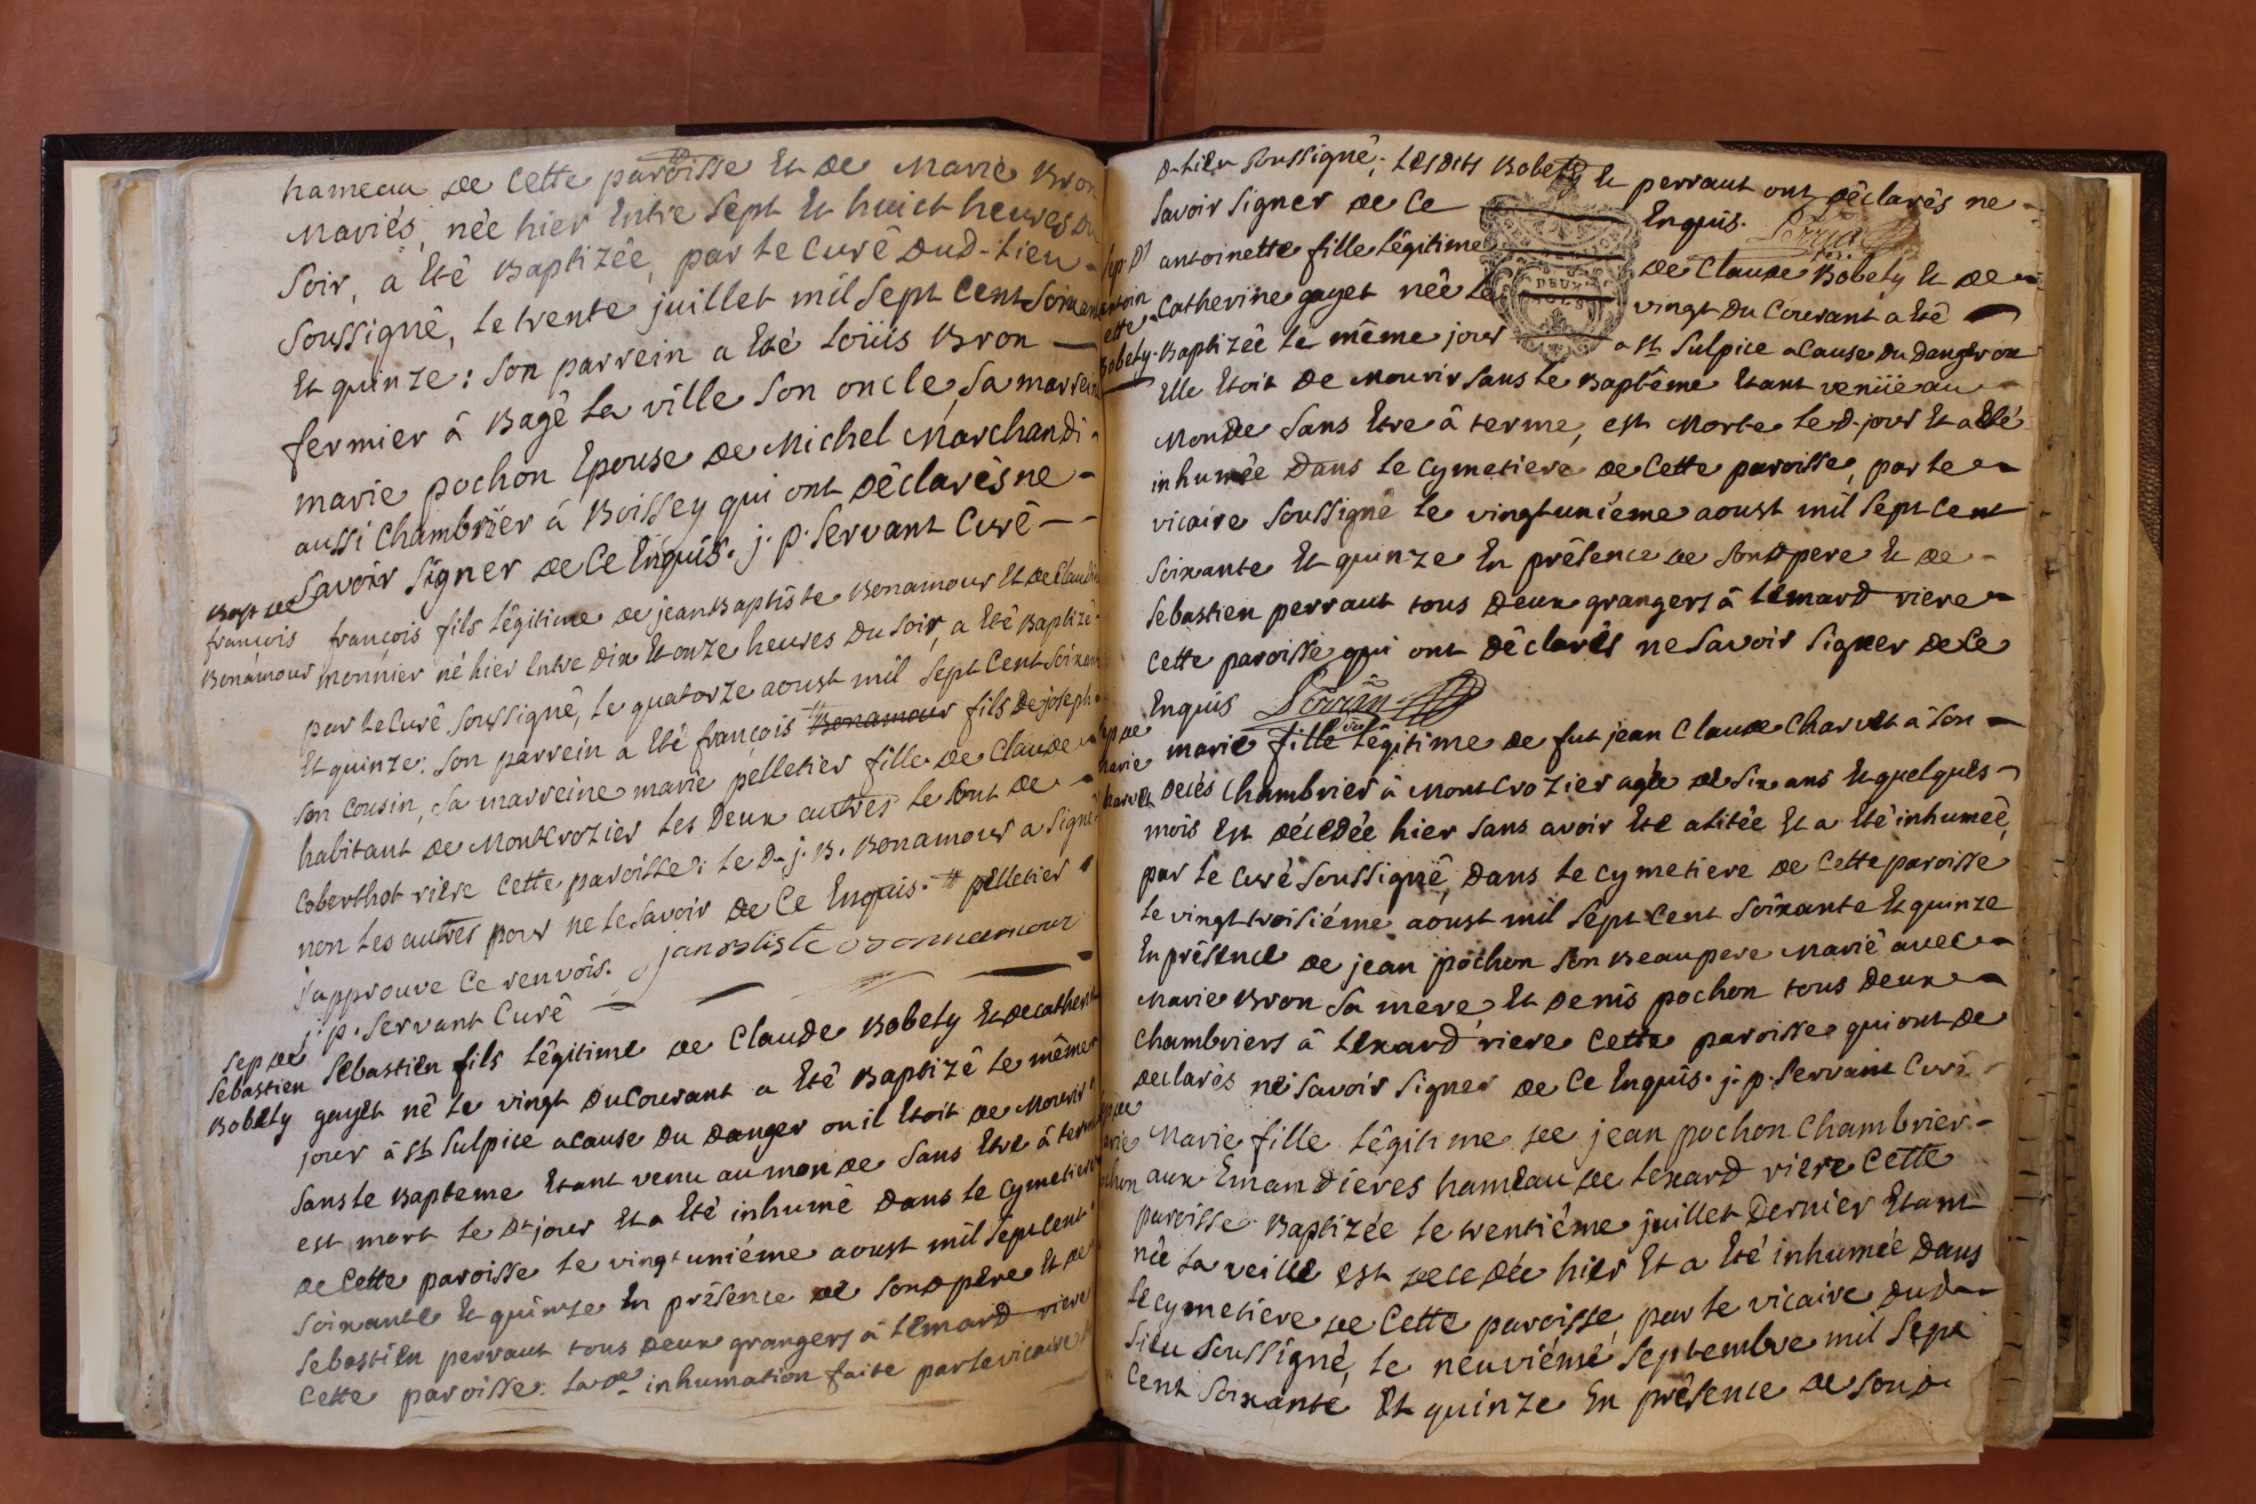 hameau de cette paroisse Et de Marie Bron
Mariés, née hier Entre Sept Et huict heures du
Soir, a Eté Baptizée, par le Curé dud-lieu
Soussigné, le trente juillet mil Sept Cent Soixan
Et quinze: Son parrein a Eté Loüis Bron
fermier à Bagé la ville Son oncle, Sa marrein
marie pochon Epouse de Michel Marchandi
aussi Chambrier à Boissey qui ont déclarés ne
Savoir Signer de Ce Enquis. j. p. Servant Curé
Bapt de
françois
Bonamour
françois fils légitime de jean Baptiste Bonamour Et de Claudi
monnier né hier Entre dix Et onze heures du Soir, a Eté Baptizé
par le Curé Soussigné, le quatorze aoust mil Sept Cent Soixan
Et quinze: Son parrein a Eté françois Bonamour fils de joseph
Son Cousin, Sa marreine marie pelletier fille de Claude
habitant de Montcrozier les deux autres le Sont de
Coberthot riere Cette paroisse: le d. j. B. Bonamour a Signé
non les autres pour ne le Savoir de Ce Enquis. # pelletier
j'approuve Ce renvois. jan batiste bonnamour
j. p. Servant Curé
Sep de
Sebastien
Bobety
Sebastien fils légitime de Claude Bobety Et de Catheri
gayet né le vingt du Courant a Eté Baptizé le même
jour à St Sulpice acause du danger ou il Etoit de Mourir
Sans le Bapteme Etant venu au monde Sans Etre à terme
est mort le dt jour Et a Eté inhumé dans le Cymetiere
de Cette paroisse le vingt uniéme aoust mil Sept Cent
Soixante Et quinze En présence de Sond pere Et de
Sebastien perraut tous deux grangers à Lémard riere
Cette paroisse: la de inhumation faite par le vicaire
d-lieu Soussigné; Lesdits Bobety Et perraut ont déclarés ne
Savoir Signer de Ce Enquis.
Sep D
antoin
ette
Bobety
antoinette fille légitime de Claude Bobety Et de
Catherine gayet née le vingt du Courant a Eté
DEUX
SOLS
Baptizée le même jour a St Sulpice acause du danger ou
Elle Etoit de Mourir Sans le Baptême Etant venüe au
Monde Sans Etre à terme, est Morte le d. jour Et a Eté
inhumée dans le Cymetiere de Cette paroisse, par le
vicaire Soussigné le vingt uniéme aoust mil Sept Cent
Soixante Et quinze En présence de Sond pere Et de
Sebastien perraut tous deux grangers à Lémard riere
Cette paroisse qui ont déclarés ne Savoir Signer de Ce
Enquis
de
marie
harvet
marie fille légitime de fut jean Claude Charvet à Son
decés Chambrier à Montcrozier agée de Six ans Et quelques
mois Est décédée hier Sans avoir Eté alitée Et a Eté inhumée,
par le Curé Soussigné, dans le Cymetiere de Cette paroisse
le vingt troisiéme aoust mil Sept Cent Soixante Et quinze
En présence de jean pochon Son Beaupere Marié avec
Marie Bron Sa mere, Et denis pochon tous deux
Chambriers à Lexard riere Cette paroisse qui ont de
declarés ne Savoir Signer de Ce Enquis. j. p. Servant Curé
de
arie
chon
Marie fille légitime de jean pochon Chambrier
aux Emandiéres hameau de Lexard riere Cette
paroisse Baptizée le trentiéme juillet dernier Etant
née la veille est decedée hier Et a Eté inhumée dans
le Cymetiere de Cette paroisse, par le vicaire dud
lieu Soussigné, le neuviéme Septembre mil Sept
Cent Soixante Et quinze En présence de Sond